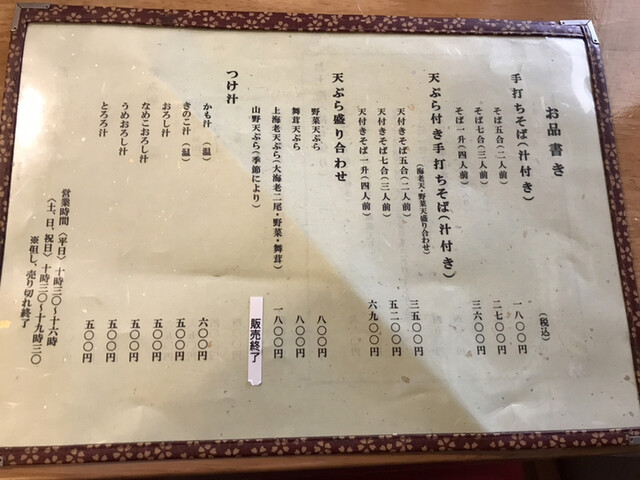 お品書き
(税込)
手打ちそば(汁付き)
そば五合(二人前) 一八〇〇円
そば七合(三人前) 二七〇〇円
そば一升(四人前) 三六〇〇円
天ぷら付き手打ちそば(汁付き)
(海老天・野菜天盛り合わせ)
天付きそば五合(二人前) 三五〇〇円
天付きそば七合(三人前) 五二〇〇円
天付きそば一升(四人前) 六九〇〇円
天ぷら盛り合わせ
野菜天ぷら 八〇〇円
舞茸天ぷら 八〇〇円
上海老天ぷら(大海老二尾・野菜・舞茸) 一八〇〇円
山野天ぷら(季節により) 販売終了
つけ汁
かも汁(温) 六〇〇円
きのこ汁(温) 五〇〇円
おろし汁 五〇〇円
なめこおろし汁 五〇〇円
うめおろし汁 五〇〇円
とろろ汁 五〇〇円
営業時間〈平日〉十時三〇〜十六時
〈土、日、祝日〉十時三〇〜十九時三〇
※但し、売り切れ終了